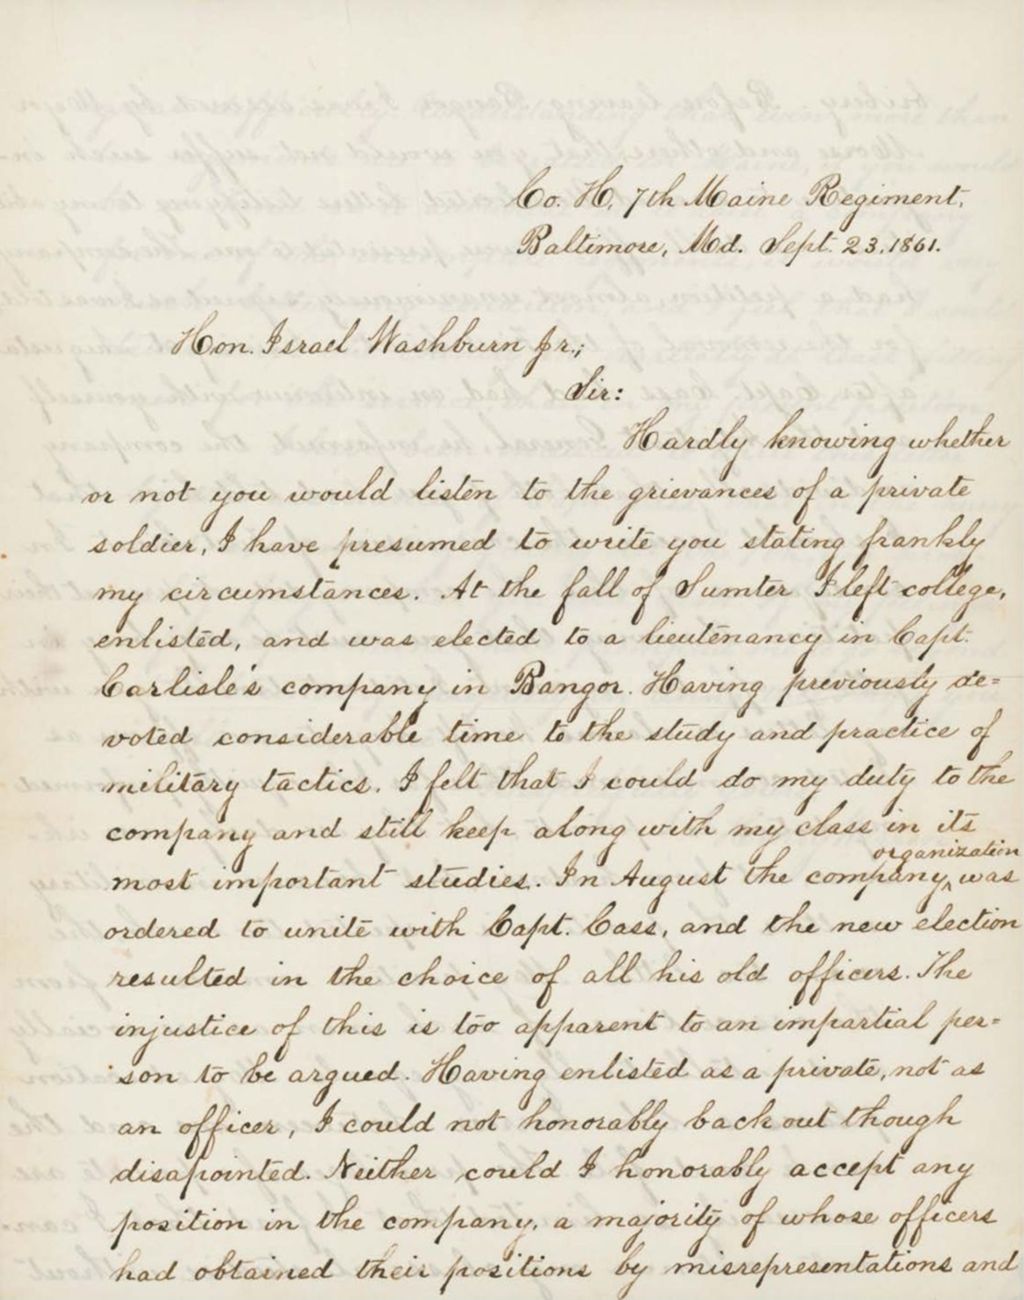 Co. H, 7th Maine Regiment,
Baltimore, Md. Sept. 23, 1861.
Hon. Israel Washburn Jr.;
Sir:
Hardly knowing whether
or not you would listen to the grievances of a private
soldier, I have presumed to write you stating frankly
my circumstances. At the fall of Sumter I left college,
enlisted, and was elected to a lieutenancy in Capt.
Carlisle's company in Bangor. Having previously de=
voted considerable time to the study and practice of
military tactics. I felt that I could do my duty to the
company and still keep along with my class in its
organization
most important studies. In August the company^ was
ordered to unite with Capt. Cass, and the new election
resulted in the choice of all his old officers. The
injustice of this is too apparent to an impartial per=
son to be argued. Having enlisted as a private, not as
an officer, I could not honorably back out though
disapointed. Neither could I honorably accept any
position in the company, a majority of whose officers
had obtained their positions by misrepresentations and